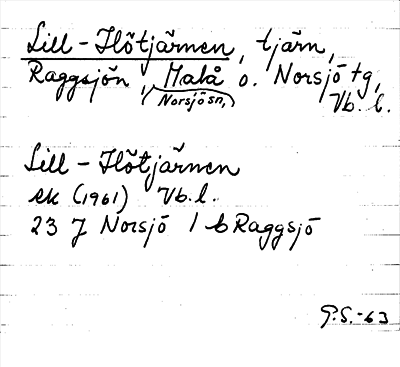 Lill-Flötjärnen, tjärn,
Raggsjön, Malå o. Norsjö tg,
(Norsjö sn,)
Vb. l.
Lill-Flötjärnen
ek (1961) Vb. l.
23 J Norsjö 1 b Raggsjö
P.S.-63